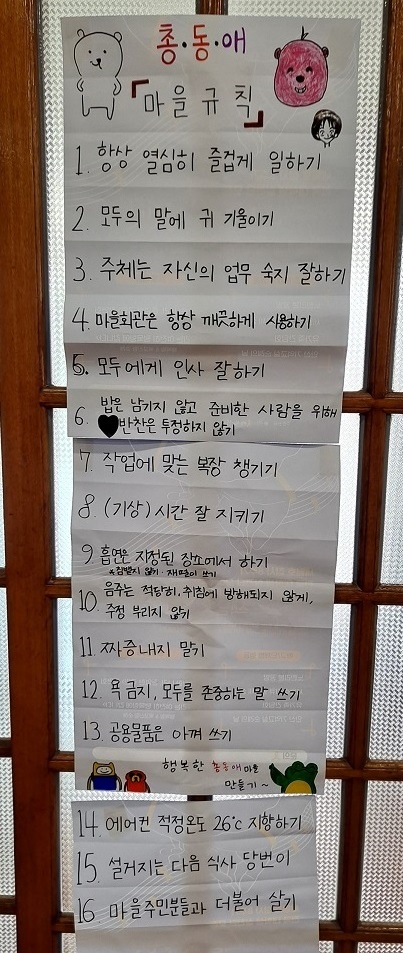 총·동·애
「마을규칙」
1. 항상 열심히 즐겁게 일하기
2. 모두의 말에 귀 기울이기
3. 주체는 자신의 업무 숙지 잘하기
4. 마을회관은 항상 깨끗하게 사용하기
5. 모두에게 인사 잘하기
6. 밥은 남기지 않고 준비한 사람을 위해
반찬은 투정하지 않기
7. 작업에 맞는 복장 챙기기
8. (기상)시간 잘 지키기
9. 흡연은 지정된 장소에서 하기
*침뱉지 않기·재떨이 쓰기
10. 음주는 적당히, 취침에 방해되지 않게,
주정 부리지 않기
11. 짜증내지 말기
12. 욕 금지, 모두를 존중하는 말 쓰기
13. 공용물품은 아껴 쓰기
행복한 총동애 마을
만들기~
14. 에어컨 적정온도 26°c 지향하기
15. 설거지는 다음 식사 당번이
16. 마을주민분들과 더불어 살기